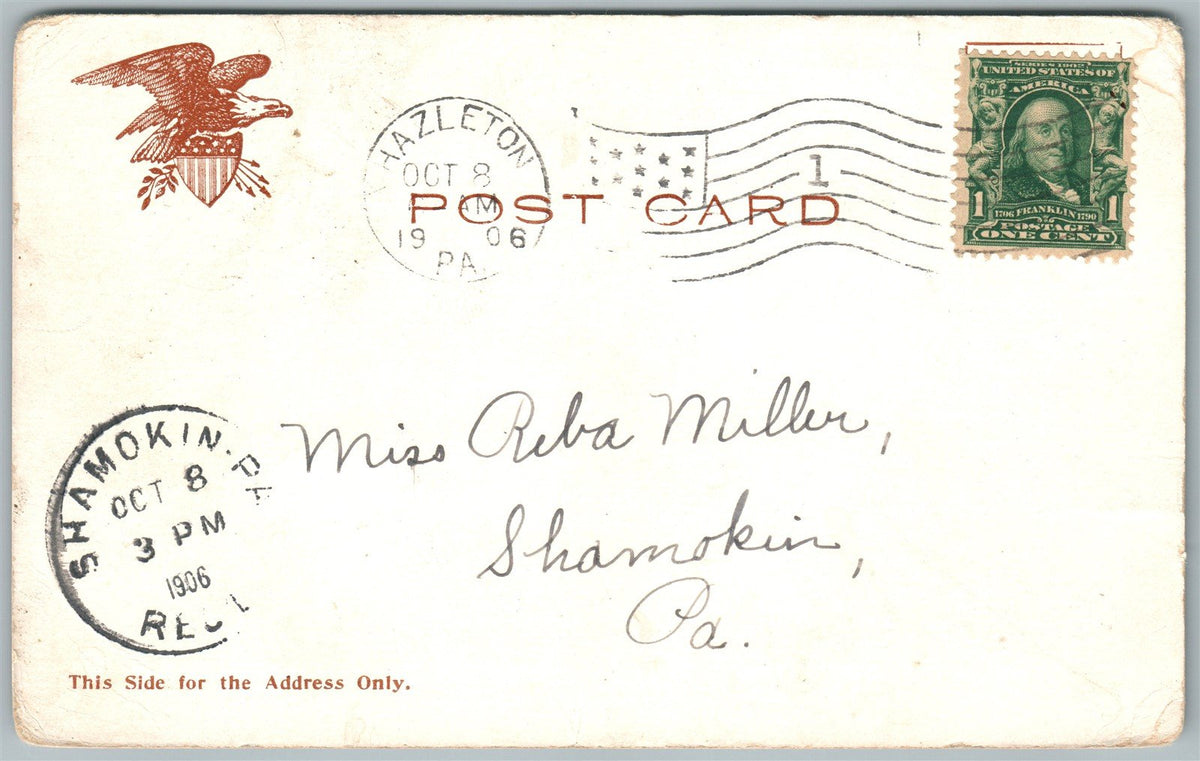 HAZLETON
OCT 8
AM
1906
PA
1
POST CARD
SERIES 1902
UNITED STATES OF
AMERICA
1 1706 FRANKLIN 1790 1
POSTAGE
ONE CENT
Miss Reba Miller,
Shamokin,
Pa.
SHAMOKIN. PA
OCT 8
3 PM
1906
This Side for the Address Only.